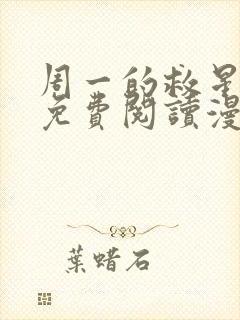 周一的救星
免費閱讀漫
葉蜡石